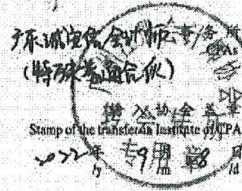 广东诚安信会计师事务所
CPAs
(特殊普通合伙)
转入协会盖章
Stamp of the transfer-in Institute of CPAs
2022年9月8日
/y /m /d
专用章